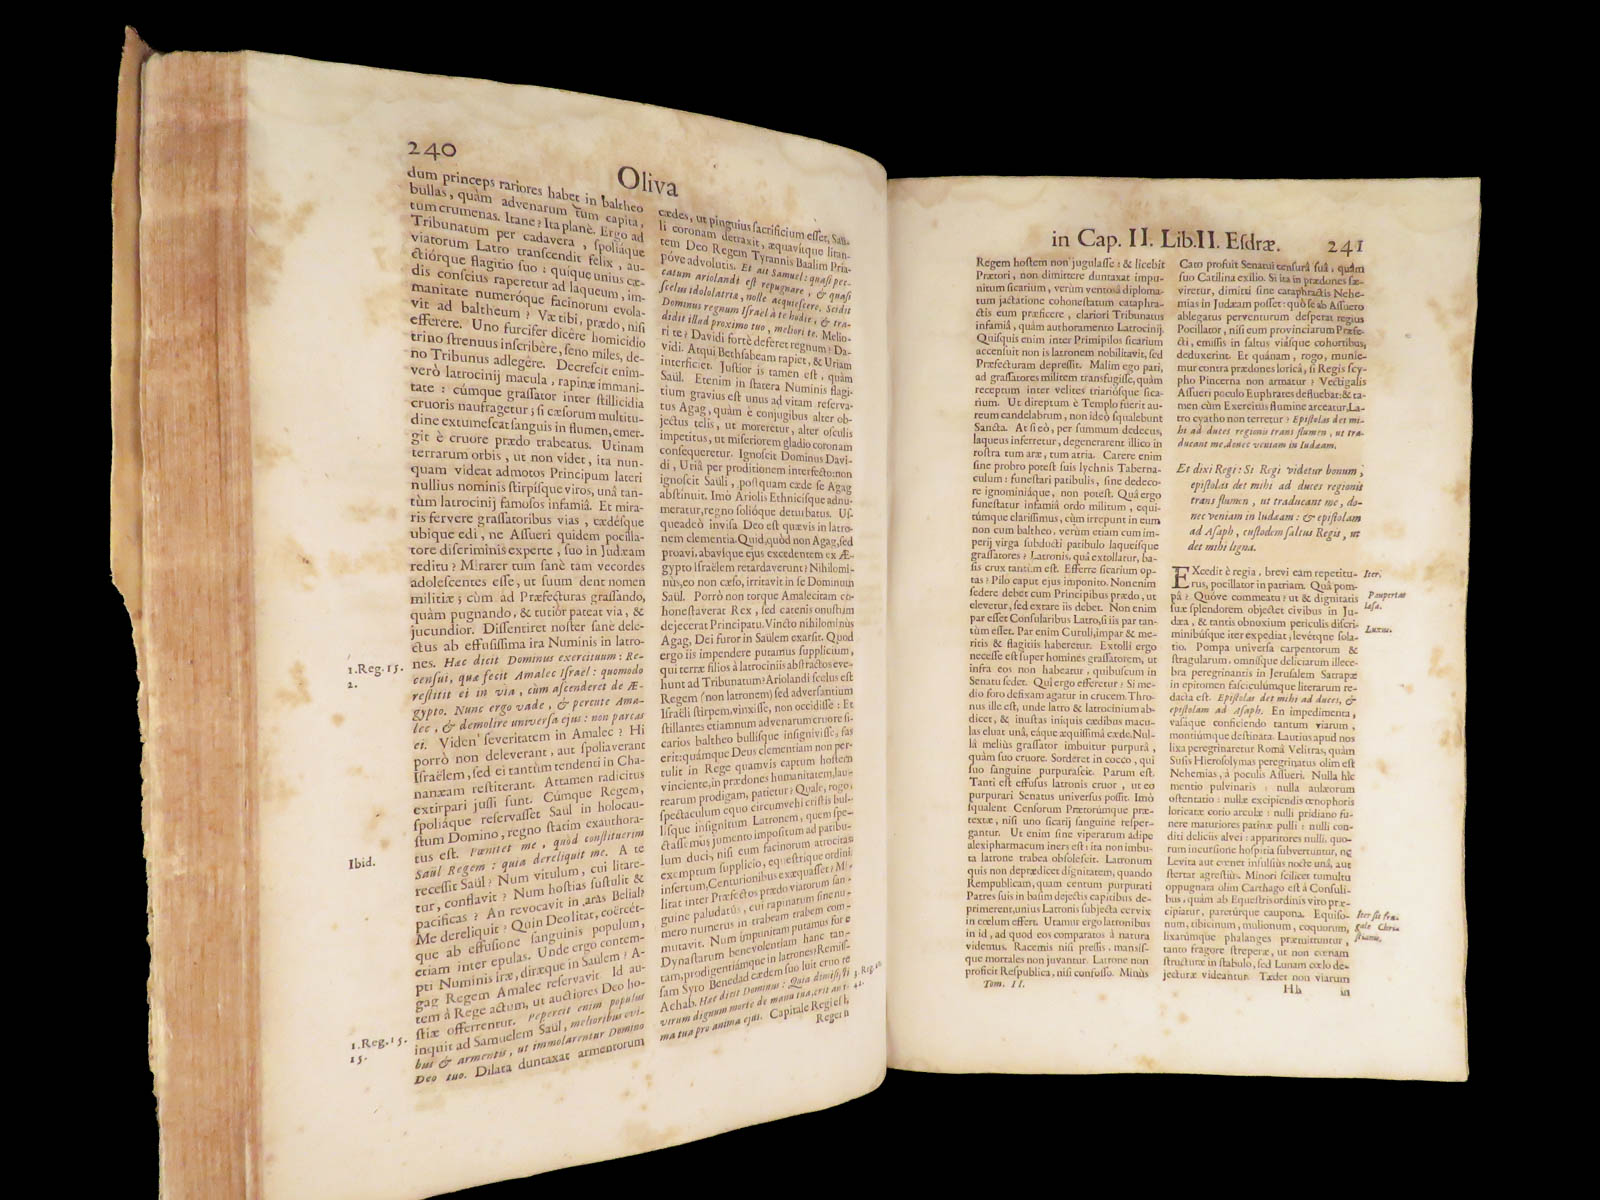 240
Oliva
dum princeps rariores habet in baltheo
bullas, quàm advenarum tum capita,
tum crumenas. Itane? Ita planè. Ergo ad
Tribunatum per cadavera, ſpoliáque
viatorum Latro tranſcendit felix, au-
ctiórque flagitio ſuo: quíque unius cæ-
dis conſcius raperetur ad laqueum, im-
manitate numeróque facinorum evola-
vit ad baltheum? Væ tibi, prædo, niſi
efferêre. Uno furcifer dicêre homicidio
trino ſtrenuus inſcribêre, ſeno miles, de-
no Tribunus adlegêre. Decreſcit enim-
verò latrocinij macula, rapinæ immani-
tate: cúmque graſſator inter ſtillicidia
cruoris naufragetur; ſi cæſorum multitu-
dine extumeſcat ſanguis in flumen, emer-
git è cruore prædo trabeatus. Utinam
terrarum orbis, ut non videt, ita nun-
quam videat admotos Principum lateri
nullius nominis ſtirpíſque viros, unâ tan-
tùm latrocinij famoſos infamiâ. Et mira-
ris fervere graſſatoribus vias, cædéſque
ubique edi, ne Aſſueri quidem pocilla-
tore diſcriminis experte, ſuo in Judæam
reditu? Mirarer tum ſanè tam vecordes
adoleſcentes eſſe, ut ſuum dent nomen
militiæ; cùm ad Præfecturas graſſando,
quàm pugnando, & tutiòr pateat via, &
jucundior. Diſſentiret noſter ſanè dele-
ctus ab effuſiſſima ira Numinis in latro-
nes. Hæc dicit Dominus exercituum: Re-
cenſui, quæ fecit Amalec Iſraël: quomodo
reſtitit ei in via, cùm aſcenderet de Æ-
gypto. Nunc ergo vade, & percute Ama-
lec, & demolire univerſa ejus: non parcas
ei. Viden' ſeveritatem in Amalec? Hi
porrò non deleverant, aut ſpoliaverant
Iſraëlem, ſed ei tantùm tendenti in Cha-
nanæam reſtiterant. Attamen radicitus
extirpari juſſi ſunt. Cúmque Regem,
ſpoliáque reſervaſſet Saül in holocau-
ſtum Domino, regno ſtatim exauthora-
tus eſt. Pœnitet me, quòd conſtituerim
Saül Regem: quia dereliquit me. A te
receſſit Saül? Num vitulum, cui litare-
tur, conflavit? Num hoſtias ſuſtulit &
pacificas? An revocavit in aras Belial?
Me dereliquit? Quin Deo litat, coërcét-
que ab effuſione ſanguinis populum,
etiam inter epulas. Unde ergo contem-
pti Numinis iræ, diræque in Saülem? A-
gag Regem Amalec reſervavit. Id au-
tem à Rege actum, ut auctiores Deo ho-
ſtiæ offerrentur. Pepercit enim populus
inquit ad Samuelem Saül, melioribus ovi-
bus & armentis, ut immolarentur Domino
Deo tuo. Dilata duntaxat armentorum
1. Reg. 15.
2.
Ibid.
1. Reg. 15.
15.
cædes, ut pinguius ſacrificium eſſet, Saü-
li coronam detraxit, æquavítque litan-
tem Deo Regem Tyrannis Baalim Pria-
póve advolutis. Et ait Samuel: quaſi pec-
catum ariolandi eſt repugnare, & quaſi
ſcelus idololatriæ, nolle acquieſcere. Scidit
Dominus regnum Iſraël à te hodie, & tra-
didit illud proximo tuo, meliori te. Melio-
ri te? Davidi fortè deferet regnum? Da-
vidi. Atqui Bethſabeam rapiet, & Uriam
interficiet. Juſtior is tamen eſt, quàm
Saül. Etenim in ſtatera Numinis flagi-
tium gravius eſt unus ad vitam reſerva-
tus Agag, quàm è conjugibus alter ob-
jectus telis, ut moreretur, alter oſculis
impetitus, ut miſeriorem gladio coronam
conſequeretur. Ignoſcit Dominus Davi-
di, Uriâ per proditionem interfecto: non
ignoſcit Saüli, poſtquam cæde ſe Agag
abſtinuit. Imò Ariolis Ethniciſque adnu-
meratur, regno ſolióque deturbatus. Uſ-
queadeò inviſa Deo eſt quævis in latro-
nem clementia. Quid, quòd non Agag, ſed
proavi, abavíque ejus excedentem ex Æ-
gypto Iſraëlem retardaverunt? Nihilomi-
nùs, eo non cæſo, irritavit in ſe Dominum
Saül. Porrò non torque Amalecitam co-
honeſtaverat Rex, ſed catenis onuſtum
dejecerat Principatu. Vincto nihilominus
Agag, Dei furor in Saülem exarſit. Quod
ergo iis impendere putamus ſupplicium,
qui terræ filios à latrociniis abſtractos eve-
hunt ad Tribunatum? Ariolandi ſcelus eſt
Regem (non latronem) ſed adverſantium
Iſraëli ſtirpem, vinxiſſe, non occidiſſe: Et
ſtillantes etiamnum advenarum cruore ſi-
carios baltheo bullíſque inſigniviſſe, fas
erit: quámque Deus clementiam non per-
tulit in Rege quamvis captum hoſtem
vinciente, in prædones humanitatem, lau-
rearum prodigam, patietur? Quale, rogo,
ſpectaculum equo circumvehi criſtis bul-
líſque inſignitum Latronem, quem ſpe-
ctaſſemus jumento impoſitum ad patibu-
lum duci, niſi eum facinorum atrocitas
exemptum ſupplicio, equeſtrique ordini
inſertum, Centurionibus exæquaſſet? Mi-
litat inter Præfectos prædo viatorum ſan-
guine paludatus, cui rapinarum ſine nu-
mero numerus in trabeam trabem com-
mutavit. Num impunitam putamus fore
Dynaſtarum benevolentiam hanc tan-
tam, prodigentiámque in latrones? Remiſ-
ſam Syro Benedad cædem ſuo luit cruore
Achab. Hæc dicit Dominus: Quia dimiſiſti
virum dignum morte de manu tua, erit ani-
ma tua pro anima ejus. Capitale Regi eſt,
Regem
3. Reg. 20.
42.
in Cap. II. Lib. II. Eſdræ.
241
Regem hoſtem non jugulaſſe: & licebit
Prætori, non dimittere duntaxat impu-
nitum ſicarium, verùm ventoſâ diploma-
tum jactatione cohoneſtatum cataphra-
ctis eum præficere, clariori Tribunatus
infamiâ, quàm authoramento Latrocinij.
Quiſquis enim inter Primipilos ſicarium
accenſuit non is latronem nobilitavit, ſed
Præfecturam depreſſit. Malim ego pari,
ad graſſatores militem transfugiſſe, quàm
receptum inter velites triarióſque ſica-
rium. Ut direptum è Templo fuerit au-
reum candelabrum, non ideò ſqualebunt
Sancta. At ſi eò, per ſummum dedecus,
laqueus inferretur, degenerarent illico in
roſtra tum aræ, tum atria. Carere enim
ſine probro poteſt ſuis lychnis Taberna-
culum: funeſtari patibulis, ſine dedeco-
re ignominiáque, non poteſt. Quâ ergo
funeſtatur infamiâ ordo militum, equi-
túmque clariſſimus, cùm irrepunt in eum
non cum baltheo, verùm etiam cum im-
perij virga ſubducti patibulo laqueíſque
graſſatores? Latronis, quâ extollatur, ba-
ſis crux tantùm eſt. Efferre ſicarium op-
tas? Pilo caput ejus imponito. Non enim
ſedere debet cum Principibus prædo, ut
elevetur, ſed extare iis debet. Non enim
par eſſet Conſularibus Latro, ſi iis par tan-
tùm eſſet. Par enim Curuli, impar & me-
ritis & flagitiis haberetur. Extolli ergo
neceſſe eſt ſuper homines graſſatorem, ut
infra eos non habeatur, quibuſcum in
Senatu ſedet. Qui ergo efferetur? Si me-
dio foro defixam agatur in crucem. Thro-
nus ille eſt, unde latro & latrocinium ab-
dicet, & inuſtas iniquis cædibus macu-
las eluat unâ, eáque æquiſſimâ cæde. Nul-
lâ meliùs graſſator imbuitur purpurâ,
quàm ſuo cruore. Sorderet in cocco, qui
ſuo ſanguine purpuraſcit. Parum eſt.
Tanti eſt effuſus latronis cruor, ut eo
purpurari Senatus univerſus poſſit. Imò
ſqualent Cenſorum Prætorúmque præ-
textæ, niſi uno ſicarij ſanguine reſper-
gantur. Ut enim ſine viperarum adipe
alexipharmacum iners eſt: ita non imbu-
ta latrone trabea obſoleſcit. Latronum
quis non deprædicet dignitatem, quando
Rempublicam, quam centum purpurati
Patres ſuis in baſim dejectis capitibus de-
primerent, unius Latronis ſubjecta cervix
in cœlum effert. Utamur ergo latronibus
in id, ad quod eos comparatos à natura
videmus. Racemis niſi preſſis, manſiſ-
que mortales non juvantur. Latrone non
proficit Reſpublica, niſi confoſſo. Minùs
Tom. II.
Cato profuit Senatui cenſurâ ſuâ, quàm
ſuo Catilina exilio. Si ita in prædones ſæ-
viretur, dimitti ſine cataphractis Nehe-
mias in Judæam poſſet: quò ſe ab Aſſuero
ablegatus perventurum deſperat regius
Pocillator, niſi eum provinciarum Præfe-
cti, emiſſis in ſaltus viáſque cohortibus,
deduxerint. Et quánam, rogo, munie-
mur contra prædones loricâ, ſi Regis ſcy-
pho Pincerna non armatur? Vectigalis
Aſſueri poculo Euphrates defluebat: & ta-
men cùm Exercitûs flumine arceatur, La-
tro cyatho non terretur? Epiſtolas det mi-
hi ad duces regionis trans flumen, ut tra-
ducant me, donec veniam in Iudæam.
Et dixi Regi: Si Regi videtur bonum,
epiſtolas det mihi ad duces regionis
trans flumen, ut traducant me, do-
nec veniam in Iudæam: & epiſtolam
ad Aſaph, cuſtodem ſaltus Regis, ut
det mihi ligna.
EXcedit è regia, brevi eam repetitu-
rus, pocillator in patriam. Quâ pom-
pâ? Quóve commeatu? ut & dignitatis
ſuæ ſplendorem objectet civibus in Ju-
dæa, & tantis obnoxium periculis diſcri-
minibúſque iter expediat, levétque ſola-
tio. Pompa univerſa carpentorum &
ſtragularum, omniſque deliciarum illece-
bra peregrinantis in Jeruſalem Satrapæ
in epitomen faſciculúmque literarum re-
dacta eſt. Epiſtolas det mihi ad duces, &
epiſtolam ad Aſaph. En impedimenta,
vaſáque conficiendo tantum viarum,
montiúmque deſtinata. Lautius apud nos
lixa peregrinaretur Româ Velitras, quàm
Suſis Hieroſolymas peregrinatus olim eſt
Nehemias, à poculis Aſſueri. Nulla hîc
mentio pulvinaris: nulla aulæorum
oſtentatio: nullæ excipiendis œnophoris
loricatæ corio arculæ: nulli pridiano fu-
nere maturiores patinæ pulli: nulli con-
diti deliciis alvei: apparitores nulli, quo-
rum incurſione hoſpitia ſubvertuntur, ne
Levita aut cœnet inſulſiùs nocte unâ, aut
ſtertat agreſtiùs. Minori ſcilicet tumultu
oppugnara olim Carthago eſt à Conſuli-
bus, quàm ab Equeſtris ordinis viro præ-
cipiatur, paretúrque caupona. Equiſo-
num, tibicinum, mulionum, coquorum,
lixarúmque phalanges præmittuntur,
tanto fragore ſtreperæ, ut non cœnam
ſtructuræ in ſtabulo, ſed Lunam cœlo de-
jecturæ videantur. Tædet non viarum
Hh
in
Iter.
Paupertas
laſa.
Luxus.
Iter ſit fru-
gale Chri-
ſtianis.